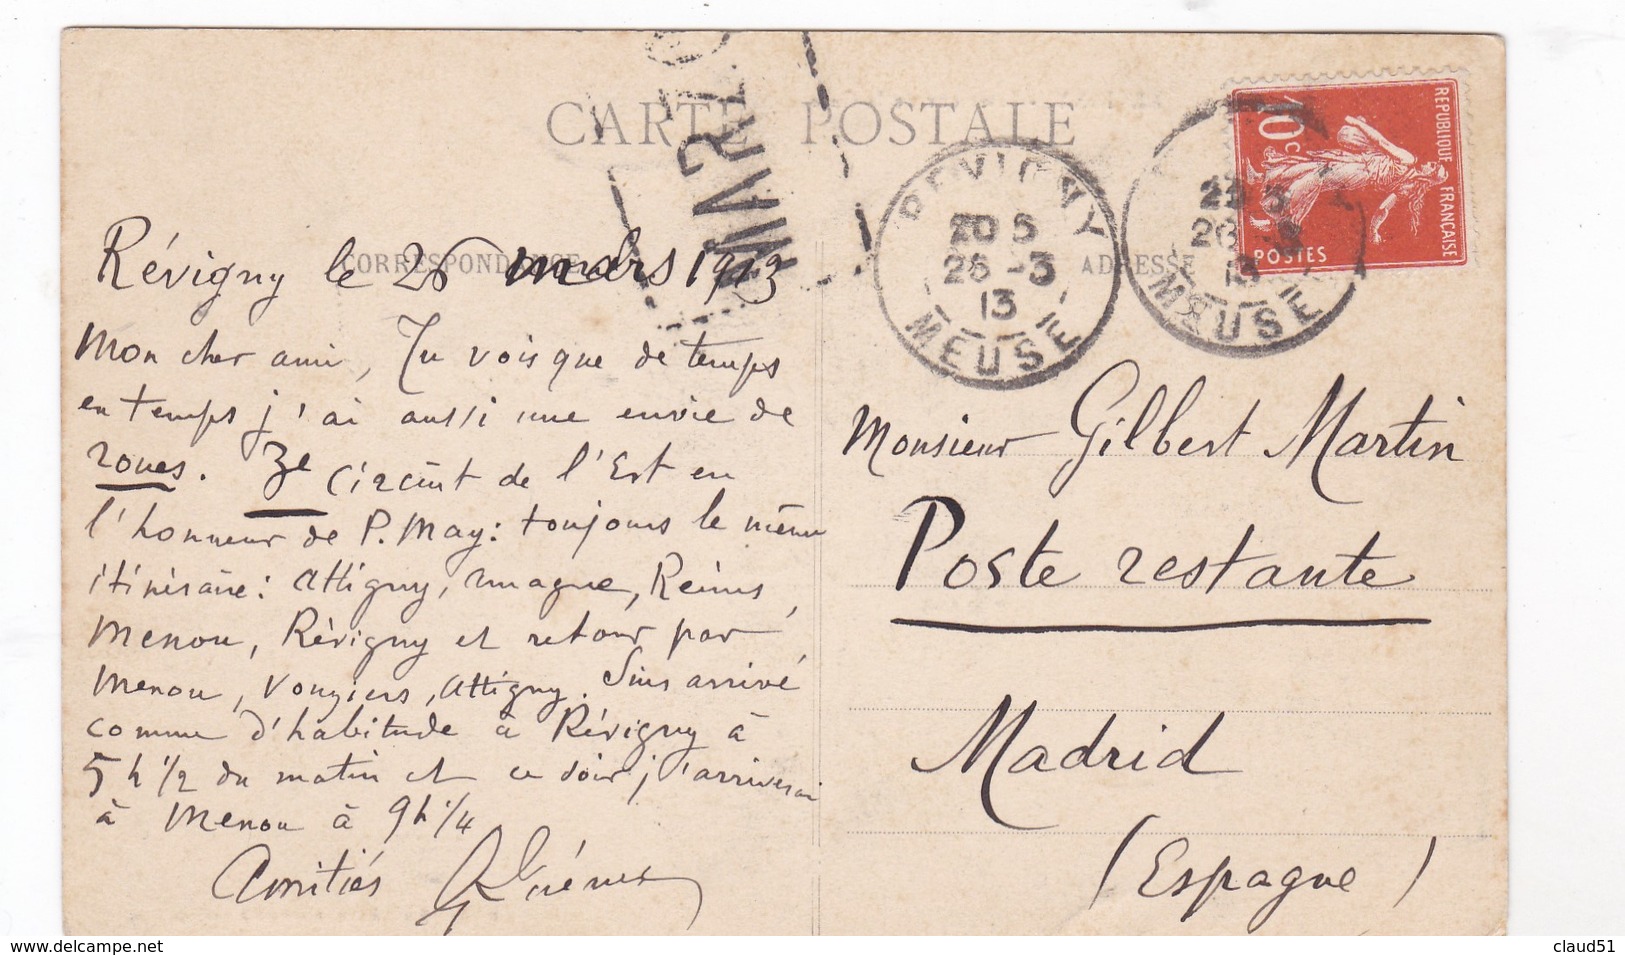 CARTE POSTALE
CORRESPONDANCE
ADRESSE
REPUBLIQUE FRANÇAISE
10c
POSTES
REVIGNY
20 5
26 -3
13
MEUSE
MEUSE
Révigny le 26 mars 1913
Mon cher ami, Tu vois que de temps
en temps j'ai aussi une envie de
roues. 3e Circuit de l'Est en
l'honneur de P. May: toujours le même
itinéraire: Attigny, Reims,
Menou, Révigny et retour par
Menou, Vouziers, Attigny. Suis arrivé
comme d'habitude à Révigny à
5h 1/2 du matin et ce soir j'arriverai
à Menou à 9h 1/4
Amitiés
Monsieur Gilbert Martin
Poste restante
Madrid
(Espagne)
claud51
www.delcampe.net